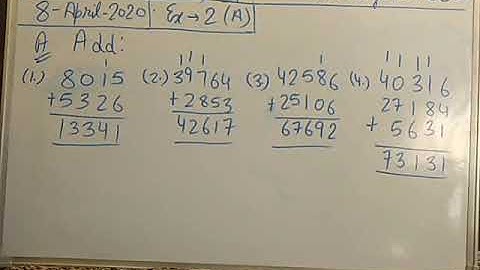 8-April-2020 Ex→2(A)
A Add:
1 111 1 1111
(1.) 8015 (2.) 39764 (3) 42586 (4.) 40316
+5326 +2853 +25106 27184
13341 42617 67692 + 5631
73131